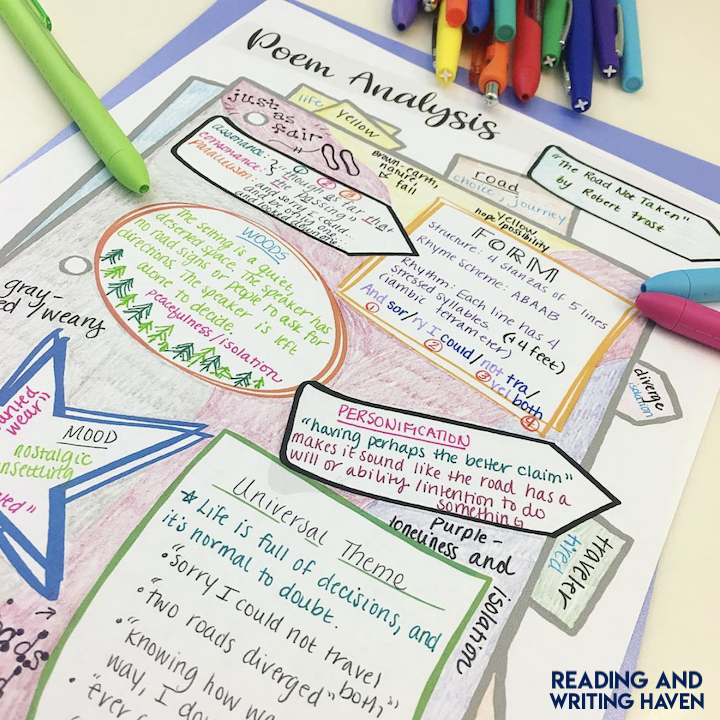 Poem Analysis
just as
fair
life
yellow
brown-earth,
nature,
& fall
road
choice, journey
"The Road Not Taken"
by Robert Frost
assonance:
consonance:
parallelism:
① ② ③
"though as far that
the passing"
and sorry I could
and be one
and looked
yellow,
hope/possibility
FORM
Structure: 4 stanzas of 5 lines
Rhyme Scheme: ABAAB
Rhythm: Each line has 4
stressed syllables. (4 feet)
(iambic tetrameter)
And sor/ry I could/not tra/
vel both
① ② ③ ④
WOODS
The setting is a quiet,
deserted space. The speaker has
no road signs or people to ask for
directions. The speaker is left
alone to decide.
peacefulness/isolation
gray-
weary
diverge
isolation
PERSONIFICATION
"having perhaps the better claim"
makes it sound like the road has a
will or ability/intention to do
something
wear"
MOOD
nostalgic
Universal Theme
Life is full of decisions, and
it's normal to doubt.
• "sorry I could not travel
both,"
• "two roads diverged"
• "knowing how wa
way, I do
• "ever
Purple-
loneliness and
isolation
traveler
tired
READING AND
WRITING HAVEN